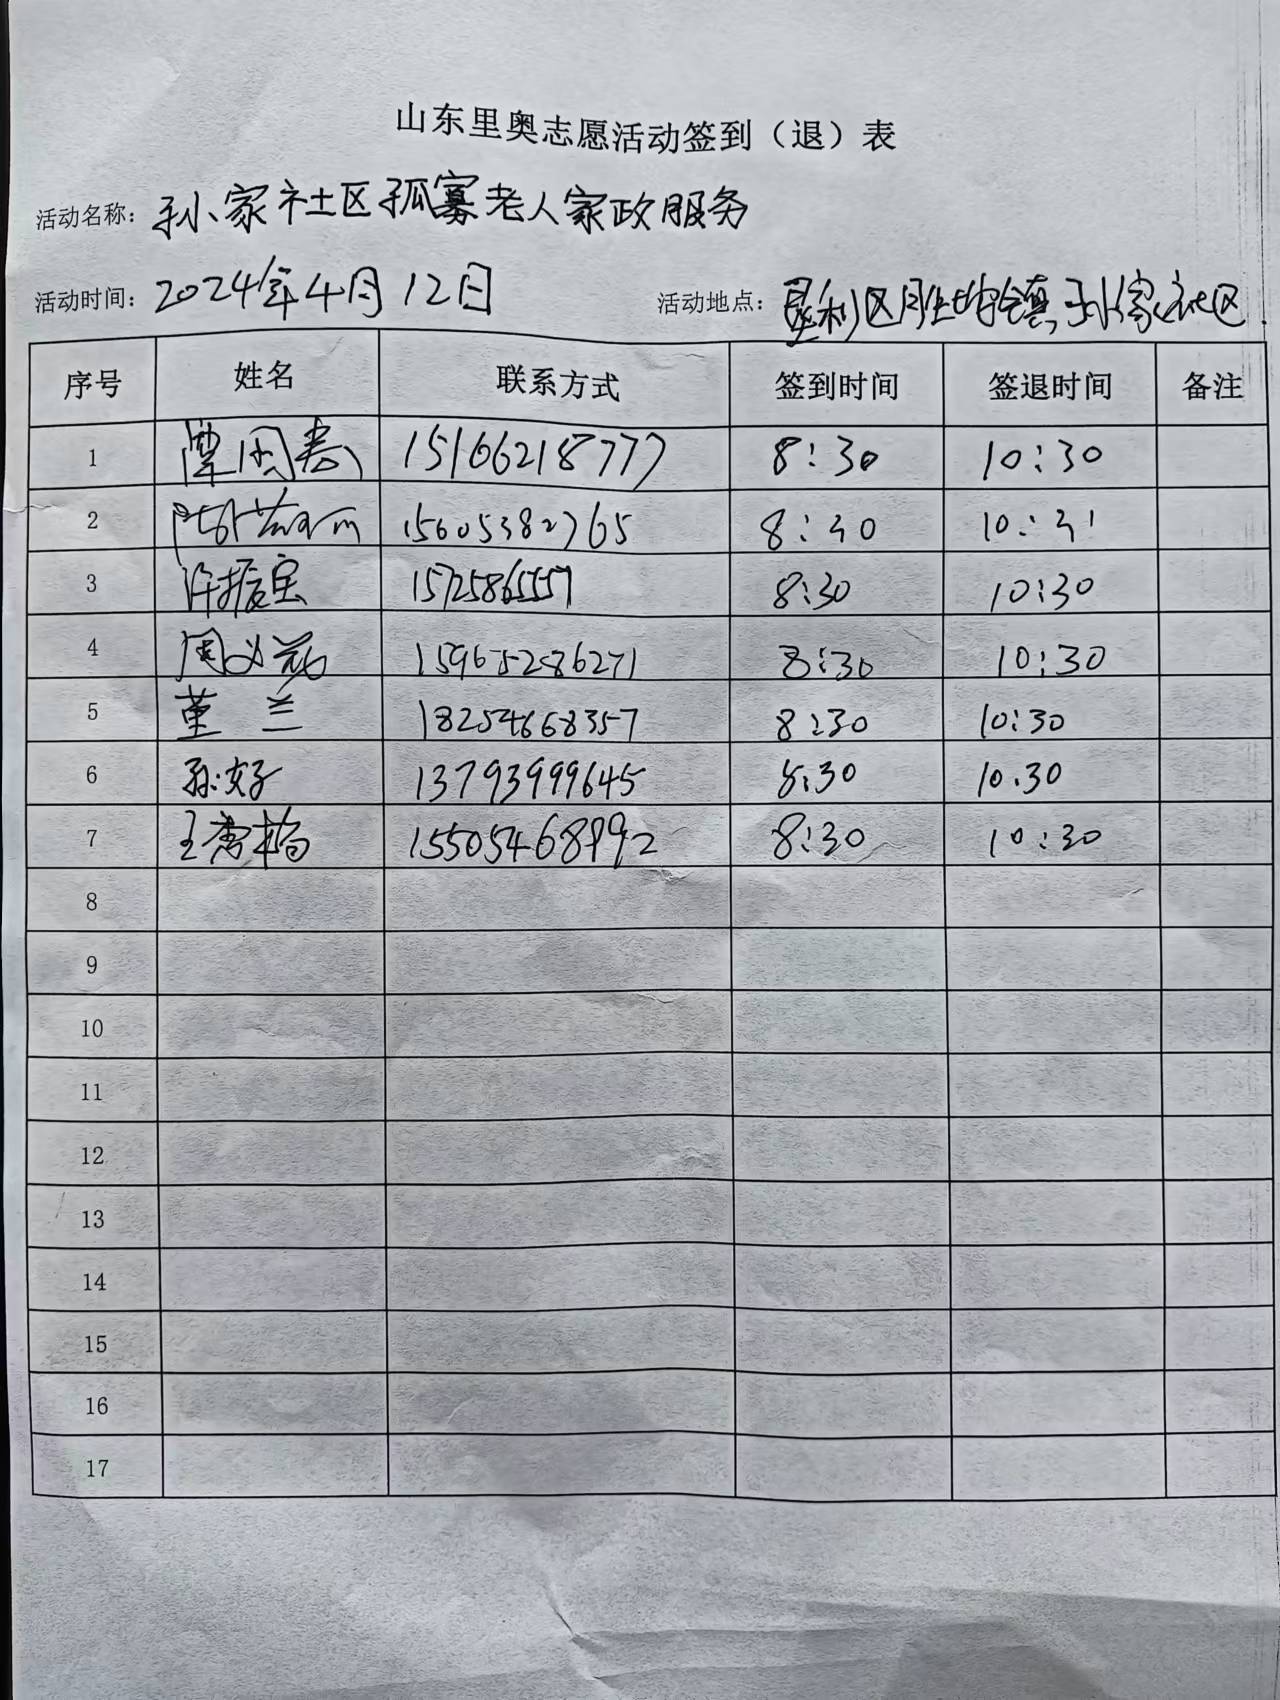 山东里奥志愿活动签到（退）表
活动名称：孙家社区孤寡老人家政服务
活动时间：2024年4月12日 活动地点：垦利区胜坨镇孙家社区
序号 姓名 联系方式 签到时间 签退时间 备注
1 15166218777 8:30 10:30
2 15605382765 8:30 10:31
3 许振宝 15725865557 8:30 10:30
4 15965286271 8:30 10:30
5 董兰 18254668357 8:30 10:30
6 孙好 13793999645 8:30 10.30
7 15505468992 8:30 10:30
8
9
10
11
12
13
14
15
16
17